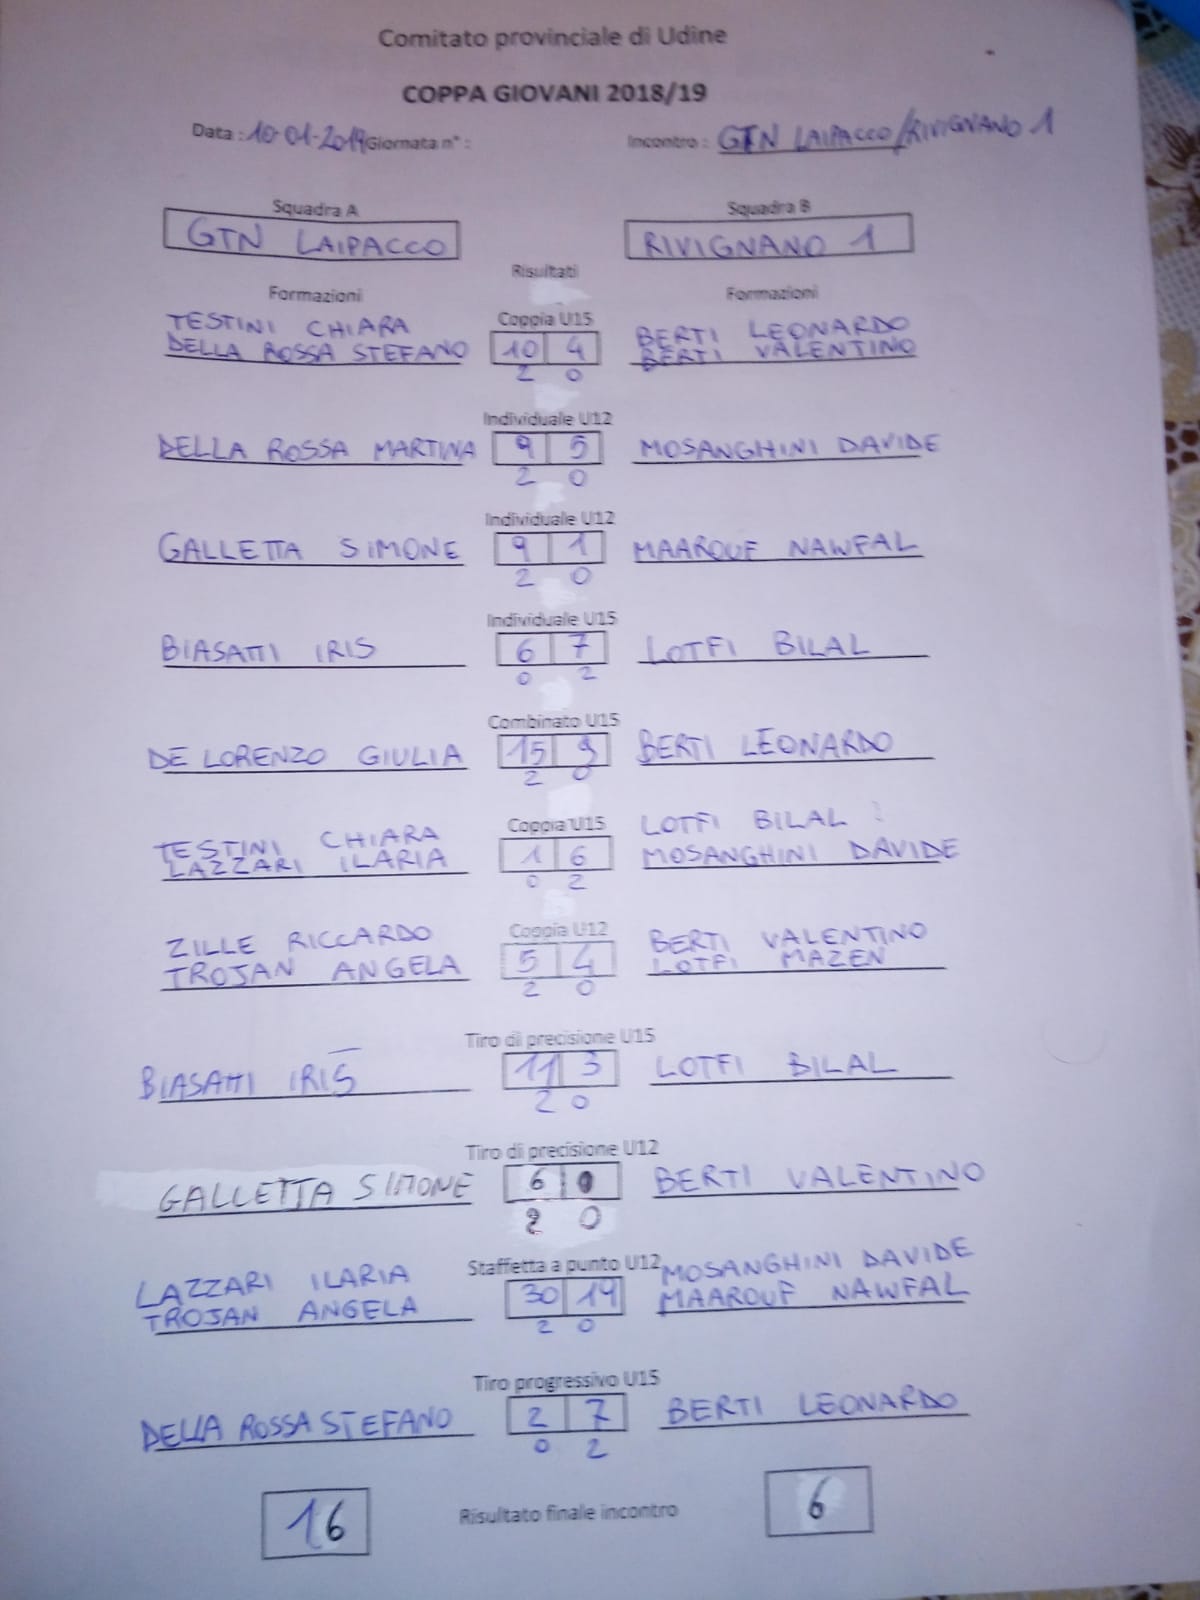 Comitato provinciale di Udine
COPPA GIOVANI 2018/19
Data : 10-01-2019 Giornata n° : Incontro : GTN LAIPACCO/RIVIGNANO 1
Squadra A Squadra B
GTN LAIPACCO RIVIGNANO 1
Risultati
Formazioni Formazioni
TESTINI CHIARA Coppia U15 BERTI LEONARDO
DELLA ROSSA STEFANO 10 4 BERTI VALENTINO
2 0
Individuale U12
DELLA ROSSA MARTINA 9 5 MOSANGHINI DAVIDE
2 0
Individuale U12
GALLETTA SIMONE 9 1 MAAROUF NAWFAL
2 0
Individuale U15
BIASATTI IRIS 6 7 LOTFI BILAL
0 2
Combinato U15
DE LORENZO GIULIA 15 9 BERTI LEONARDO
2 0
TESTINI CHIARA Coppia U15 LOTFI BILAL
LAZZARI ILARIA 1 6 MOSANGHINI DAVIDE
0 2
ZILLE RICCARDO Coppia U12 BERTI VALENTINO
TROJAN ANGELA 5 4 LOTFI MAZEN
2 0
Tiro di precisione U15
BIASATTI IRIS 11 3 LOTFI BILAL
2 0
Tiro di precisione U12
GALLETTA SIMONE 6 0 BERTI VALENTINO
2 0
LAZZARI ILARIA Staffetta a punto U12 MOSANGHINI DAVIDE
TROJAN ANGELA 30 19 MAAROUF NAWFAL
2 0
Tiro progressivo U15
DELLA ROSSA STEFANO 2 7 BERTI LEONARDO
0 2
16 Risultato finale incontro 6